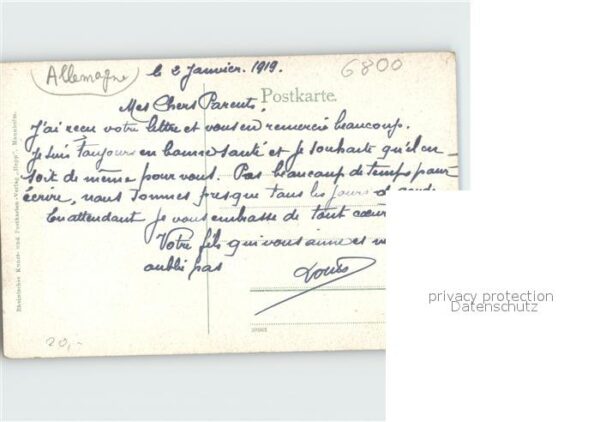 Allemagne
le 2 Janvier. 1919.
6800
Postkarte.
Mes Chers Parents,
J'ai reçu votre lettre et vous en remercie beaucoup.
Je suis toujours en bonne santé et je souhaite qu'il en
soit de même pour vous. Pas beaucoup de temps pour
écrire, nous sommes presque tous les jours de
En attendant je vous embrasse de tout cœur
Votre fils qui vous aime et
oublie pas
Louis
Rheinischer Kunst- und Postkarten-Verlag „Hepp", Mannheim.
20,-
privacy protection
Datenschutz